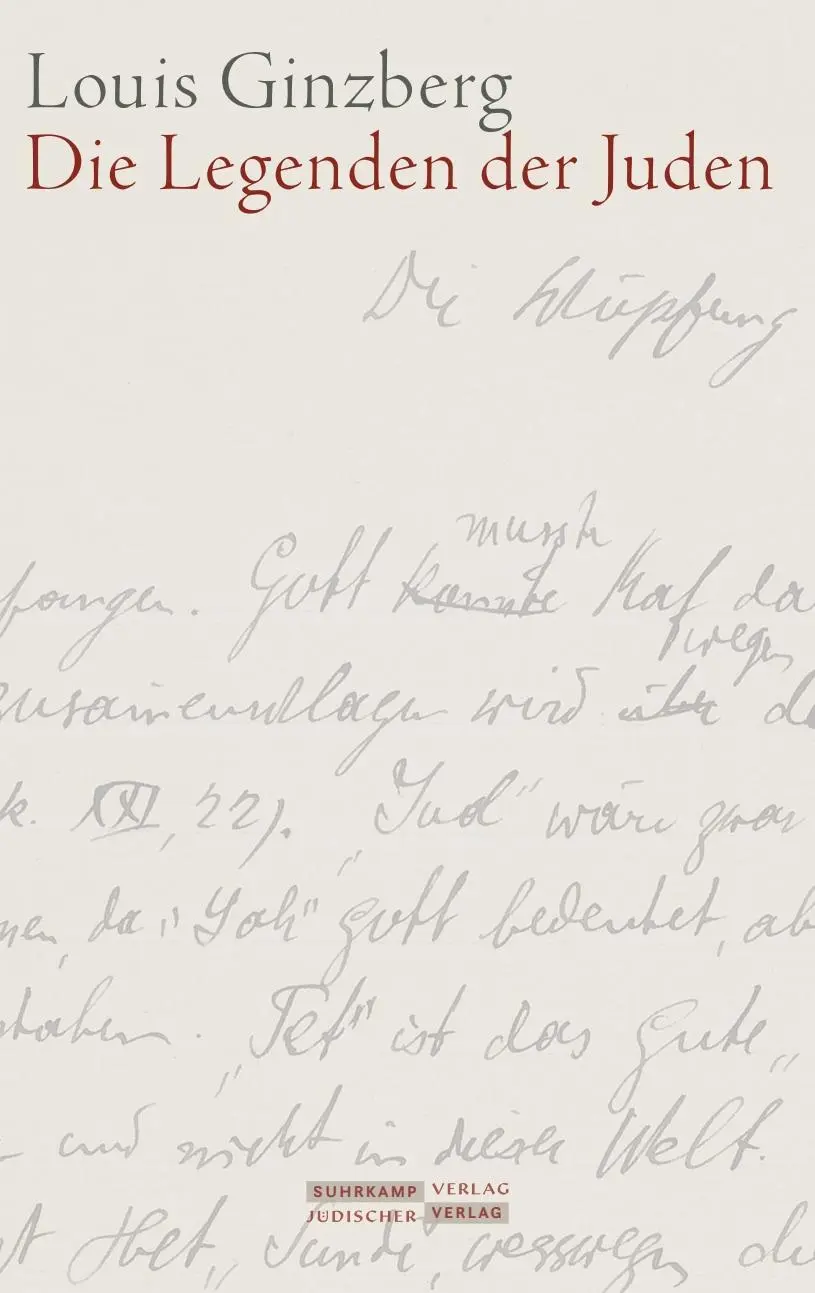 Louis Ginzberg
Die Legenden der Juden
Die Schöpfung
musste
fangen. Gott konnte Kaf da
wegen
zusammenschlagen wird über de
k. XXI, 22). „Jud“ wäre zwar
nen, da „Yah“ Gott bedeutet, ab
staben. „Tet“ ist das Gute„
und nicht in dieser Welt.
SUHRKAMP VERLAG
JÜDISCHER VERLAG
Het„ Sünde, wesswegen die